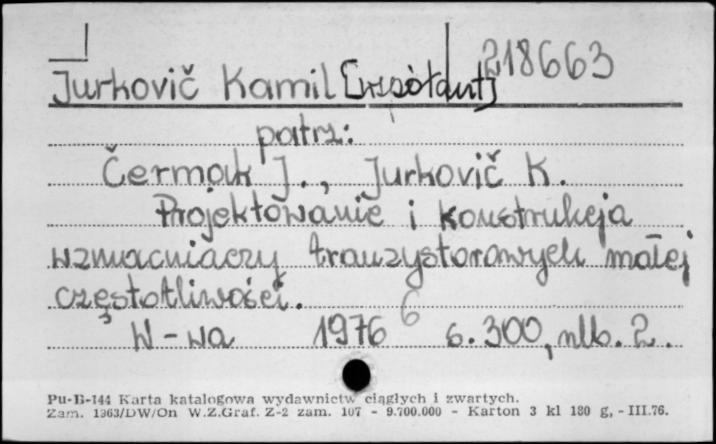 218663
Jurkovič Kamil [współaut]
patrz:
Čermak J., Jurkovič K.
Projektowanie i konstrukcja
wzmacniaczy tranzystorowych małej
częstotliwości.
W-wa 1976 6 s. 300, nlb. 2.
Pu-B-144 Karta katalogowa wydawnictw ciągłych i zwartych.
Zam. 1363/DW/On W.Z.Graf. Z-2 zam. 107 - 9.700.000 - Karton 3 kl 180 g, - III.76.